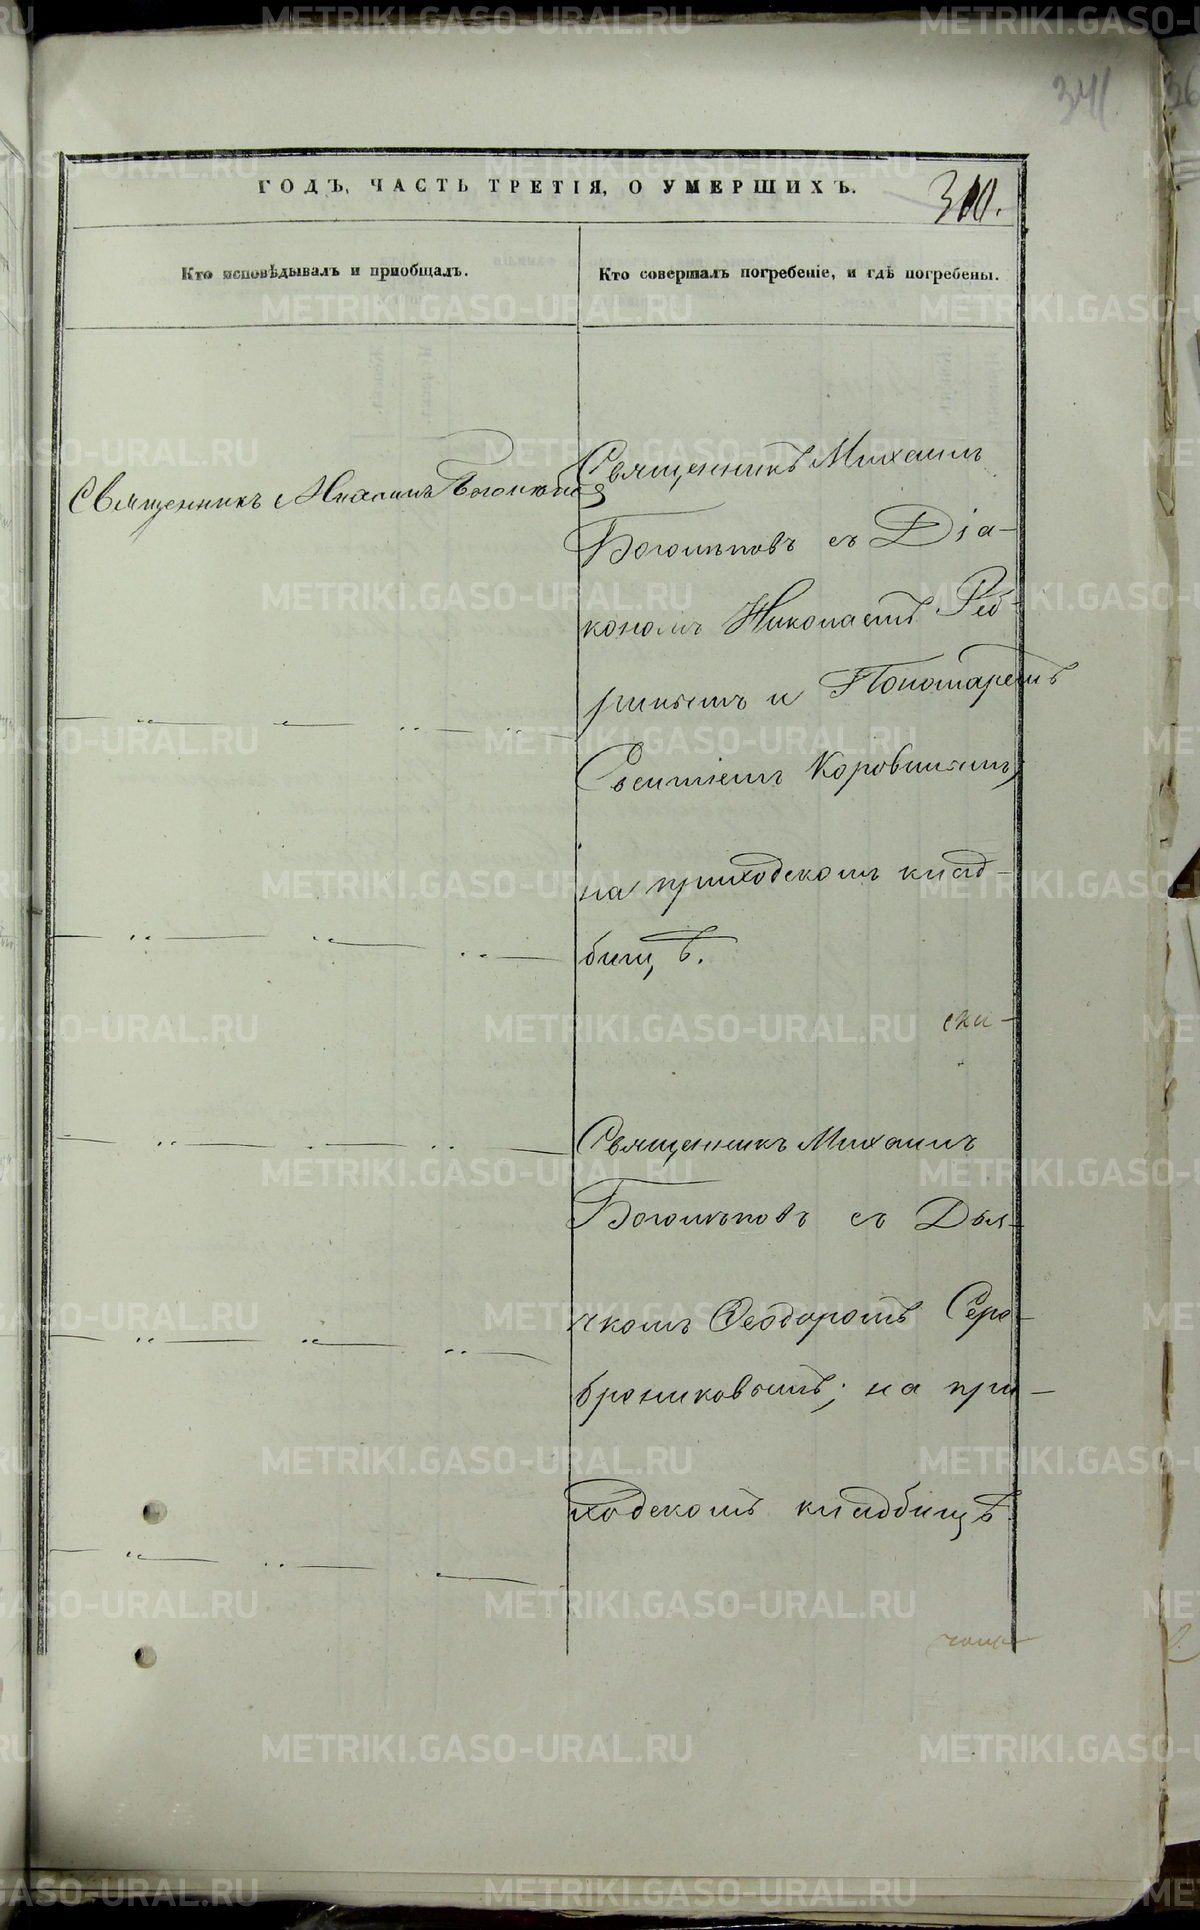 341
ГОДЪ, ЧАСТЬ ТРЕТІЯ, О УМЕРШИХЪ.
310.
Кто исповѣдывалъ и пріобщалъ.
Кто совершалъ погребеніе, и гдѣ погребены.
Священникъ Михаилъ
Священникъ Михаилъ
Боголѣповъ съ Діа-
кономъ Николаемъ
и Пономаремъ
Коровинымъ,
на приходскомъ клад-
бищѣ.
Священникъ Михаилъ
Боголѣповъ съ Дья-
чкомъ Ѳеодоромъ Сере-
брениковымъ; на при-
ходскомъ кладбищѣ
METRIKI.GASO-URAL.RU